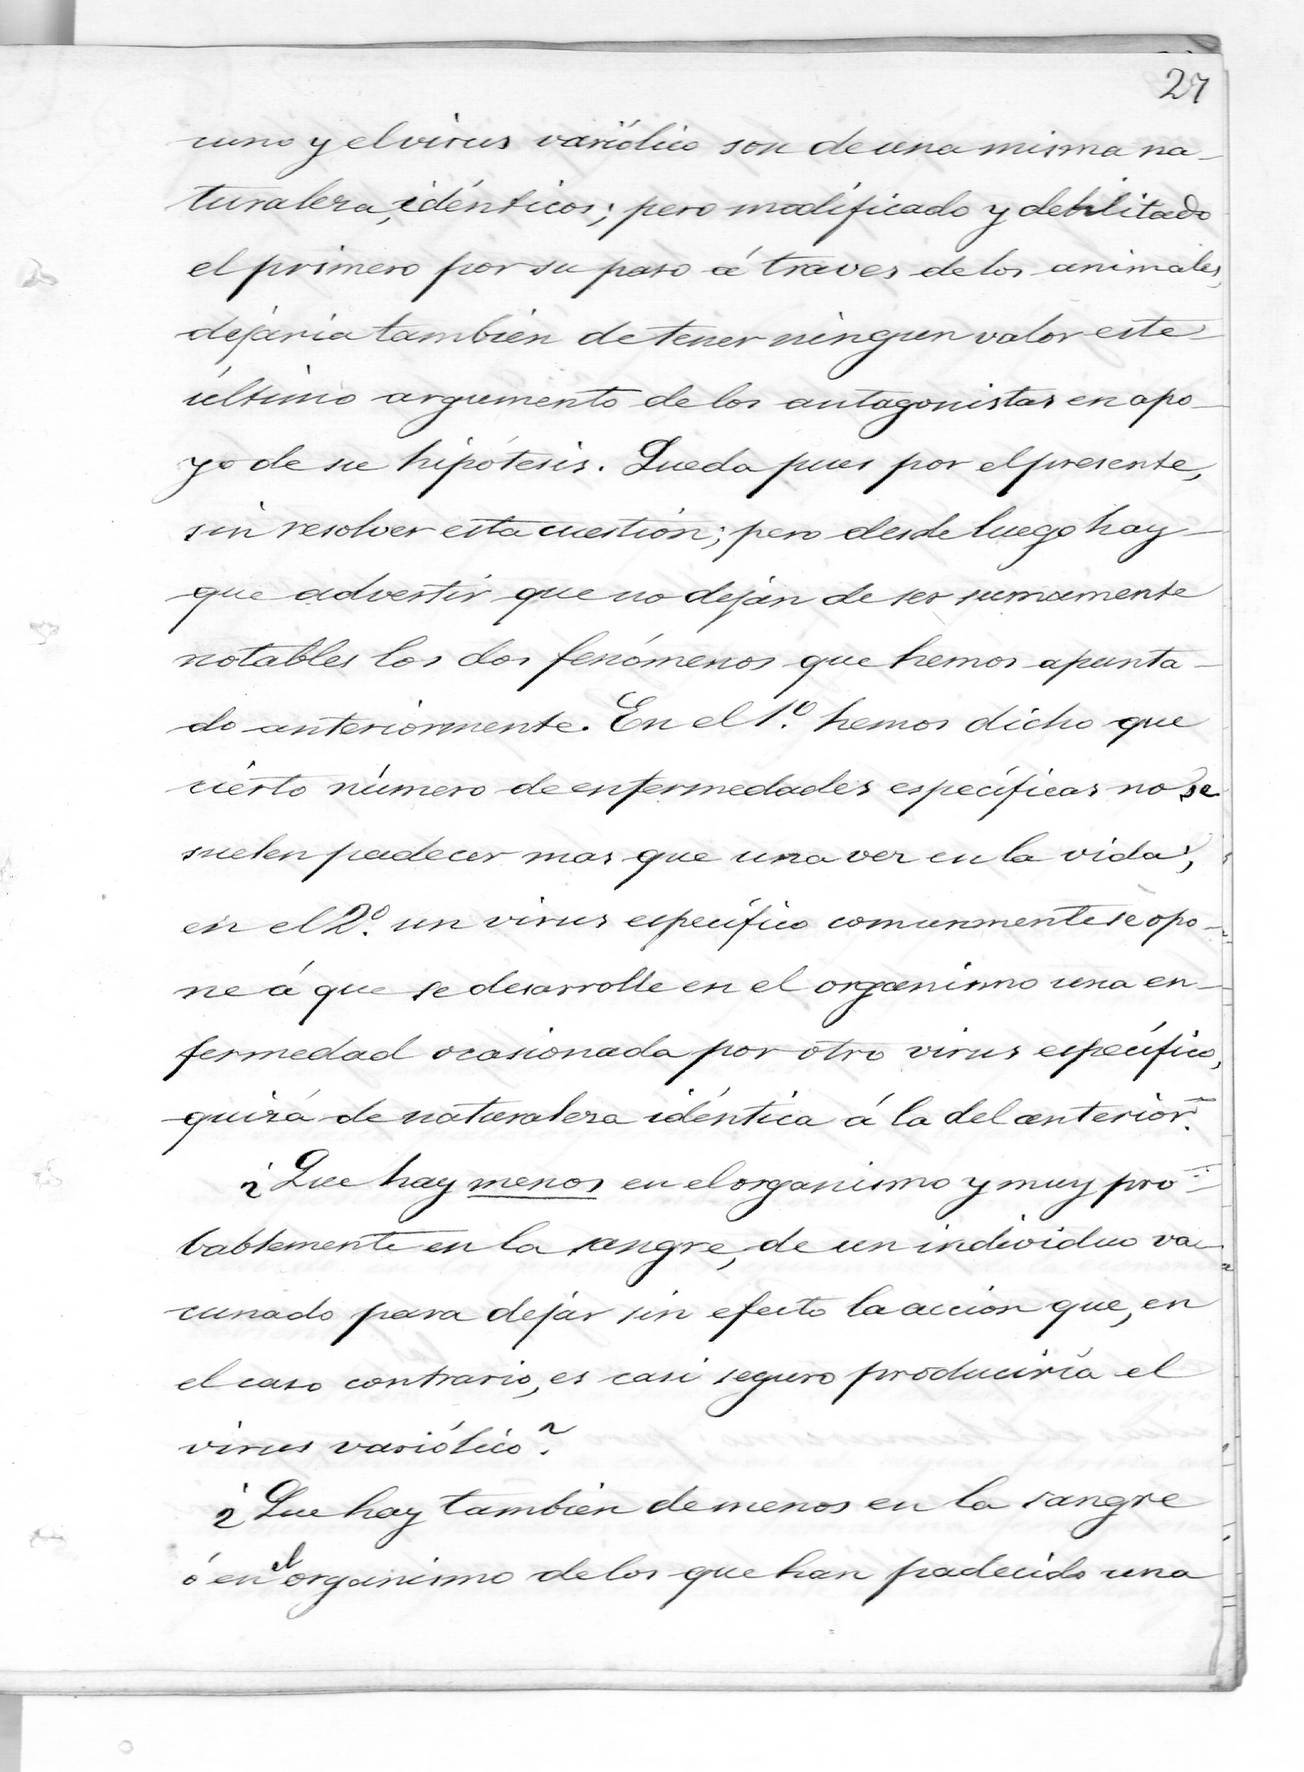 27
cuno y el virus variólico son de una misma na-
turaleza, idénticos; pero modificado y debilitado
el primero por su paso á traves de los animales,
dejaria también de tener ningun valor este
último argumento de los antagonistas en apo-
yo de su hipótesis. Queda pues por el presente,
sin resolver esta cuestión; pero desde luego hay
que advertir que no dejan de ser sumamente
notables los dos fenómenos que hemos apunta-
do anteriormente. En el 1º. hemos dicho que
cierto número de enfermedades específicas no se
suelen padecer mas que una vez en la vida;
en el 2º. un virus específico comunmente se opo-
ne á que se desarrolle en el organismo una en-
fermedad ocasionada por otro virus específico,
quizá de naturaleza idéntica á la del anterior.
¿Que hay menos en el organismo y muy pro-
bablemente en la sangre, de un individuo va-
cunado para dejar sin efecto la accion que, en
el caso contrario, es casi seguro produciría el
virus variólico?
¿Que hay también de menos en la sangre
ó en el organismo de los que han padecido una